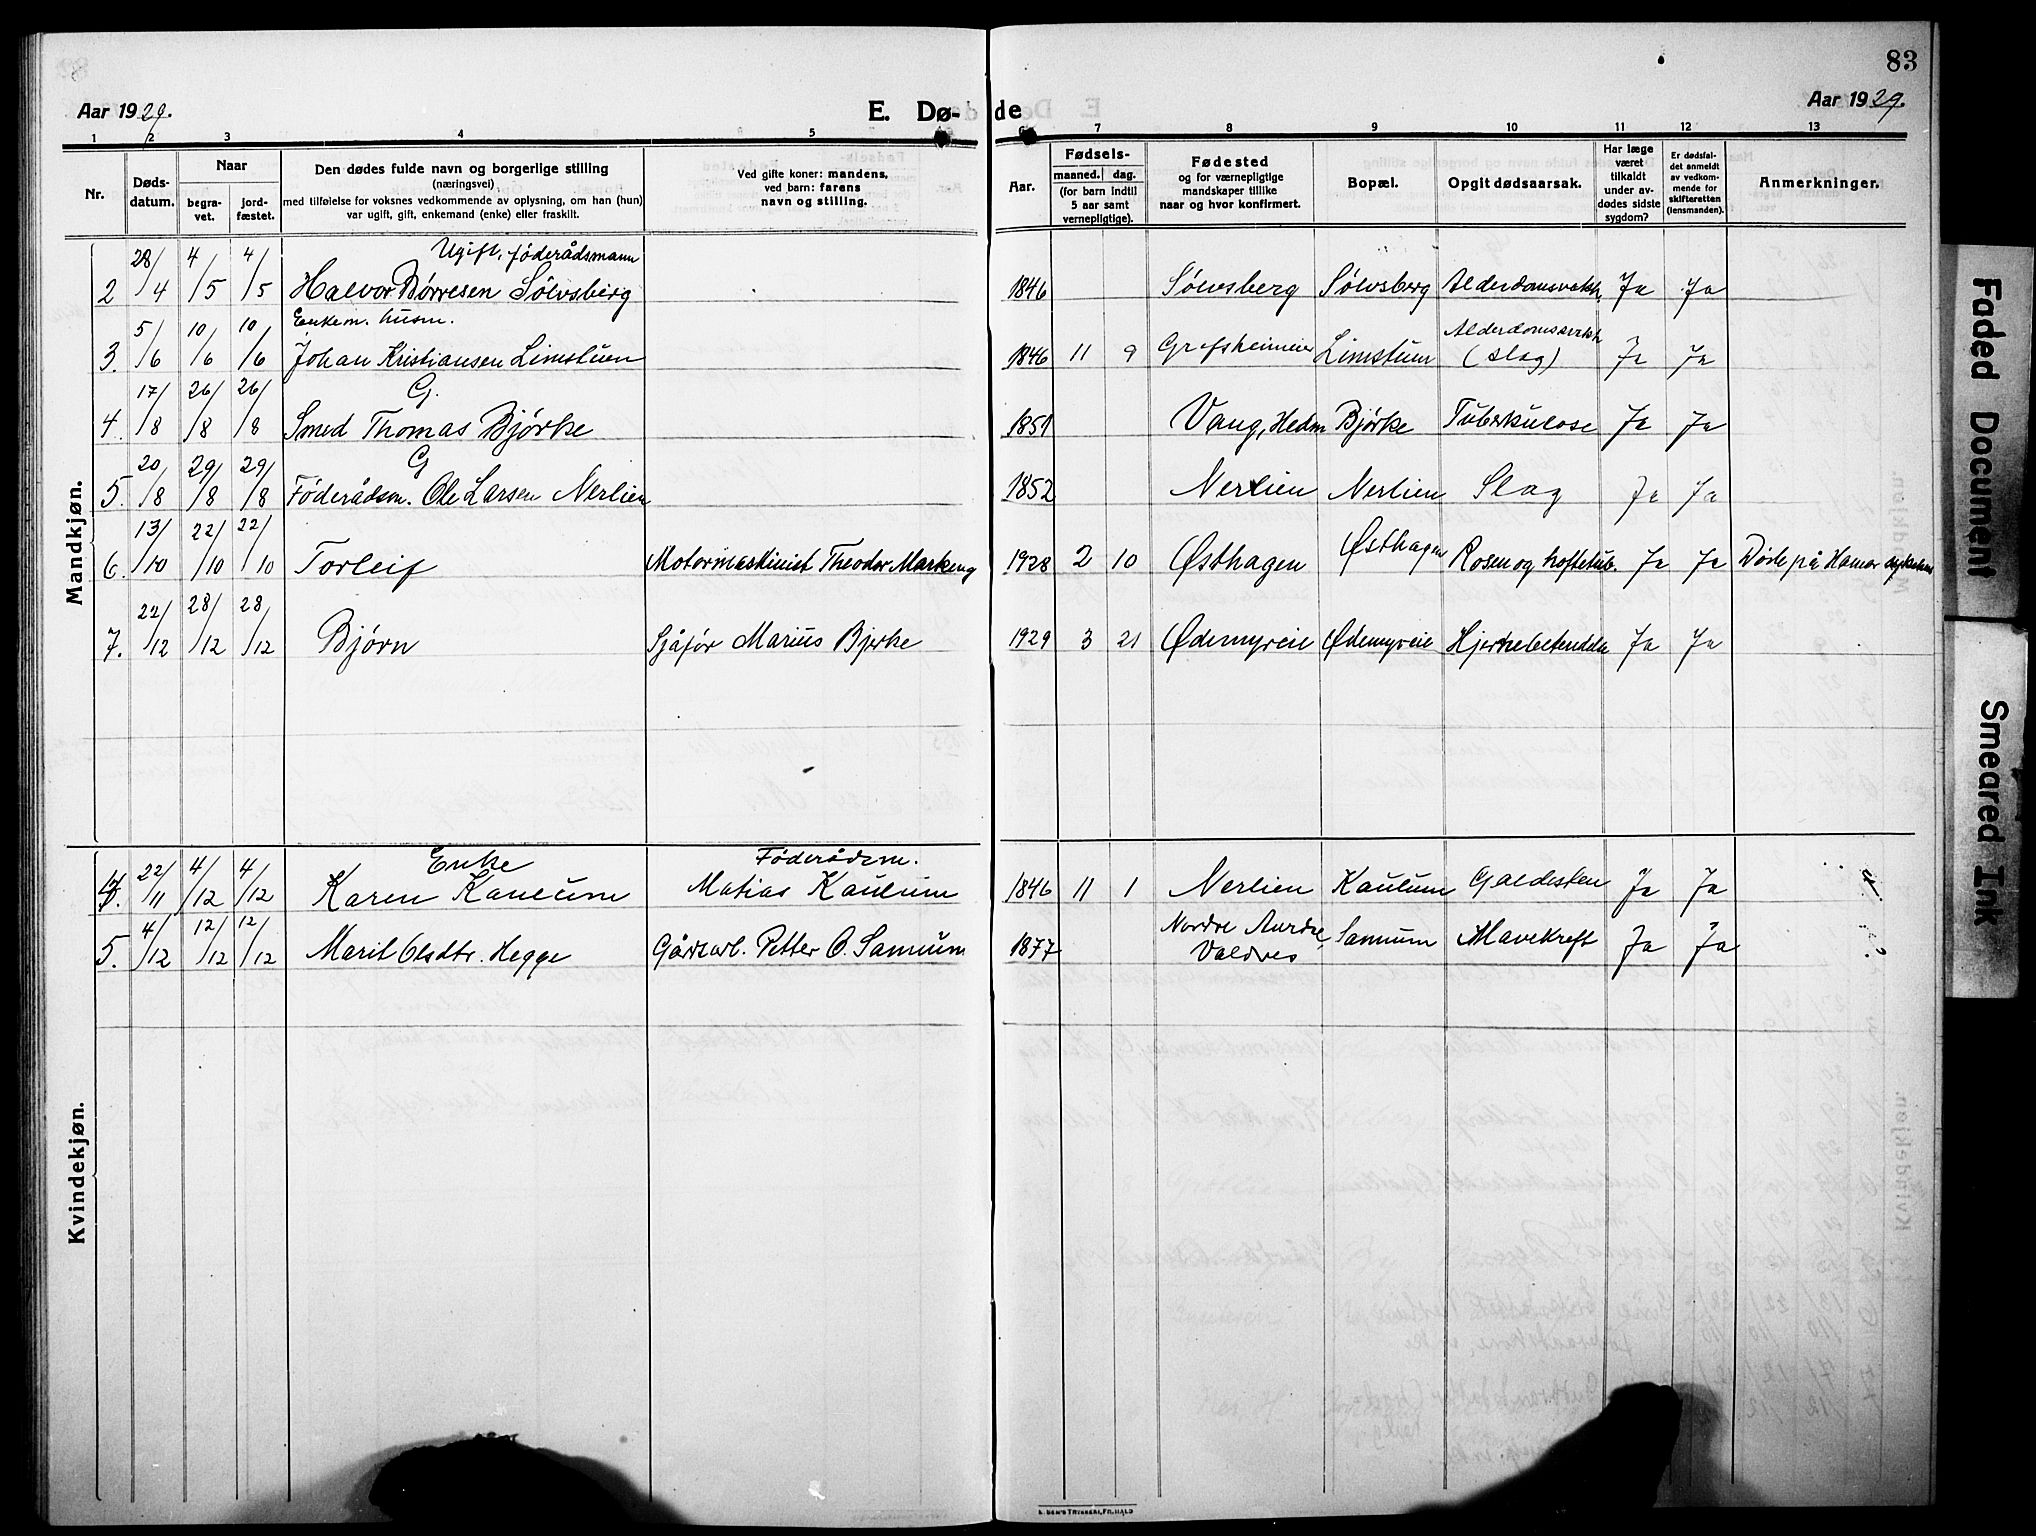 83
Aar 1929. E. Dø- de Aar 1929.
1 2 3 4 5 6 7 8 9 10 11 12 13
Nr.
Døds-
datum.
Naar
begra-
vet.
jord-
fæstet.
Den dødes fulde navn og borgerlige stilling
(næringsvei)
med tilføielse for voksnes vedkommende av oplysning, om han (hun)
var ugift, gift, enkemand (enke) eller fraskilt.
Ved gifte koner: mandens,
ved barn: farens
navn og stilling.
Aar.
Fødsels-
maaned. dag.
(for barn indtil
5 aar samt
vernepligtige).
Fødested
og for værnepligtige
mandskaper tillike
naar og hvor konfirmert.
Bopæl.
Opgit dødsaarsak.
Har læge
været
tilkaldt
under av-
dødes sidste
sygdom?
Er dødsfal-
det anmeldt
av vedkom-
mende for
skifteretten
(lensmanden).
Anmerkninger.
Mandkjøn.
Ugift, föderådsmann
2 28/4 4/5 4/5 Halvor Børresen Sölvsberg 1846 Sölvsberg Sölvsberg Alderdomsvekk. Ja Ja
Enkem. husm. Alderdomssvekk
3. 5/6 10/6 10/6 Johan Kristiansen Limstuen 1846 11 9 Grefsheimeie Limstuen (slag) Ja Ja
G.
4. 17/8 26/8 26/8 Smed Thomas Bjørke 1851 Vang, Hedm Bjørke Tuberkulose Ja Ja
G
5. 20/8 29/8 29/8 Föderådsm. Ole Larsen Nerlien 1852 Nerlien Nerlien Slag Ja Ja
6. 13/10 22/10 22/10 Torleif Motormaskinist Theodor Markeng 1928 2 10 Østhagen Østhagen Rosen og hoftetub. Ja Ja Døde på Hamar sykehus
7. 22/12 28/12 28/12 Bjørn Sjåfør Marius Bjerke 1929 3 21 Ødemyreie Ødemyreie Hjernebetendelse Ja Ja
Kvindekjøn.
Enke Föderådsm.
4. 22/11 4/12 4/12 Karen Kaulum Matias Kaulum 1846 11 1 Nerlien Kaulum Galdesten Ja Ja
5. 4/12 12/12 12/12 Marit Olsdtr. Hegge Gårdarb. Petter O. Samuum 1877 Nordre Aurdal, Samuum Mavekreft Ja Ja
Valdres
Faded Document
Smeared Ink